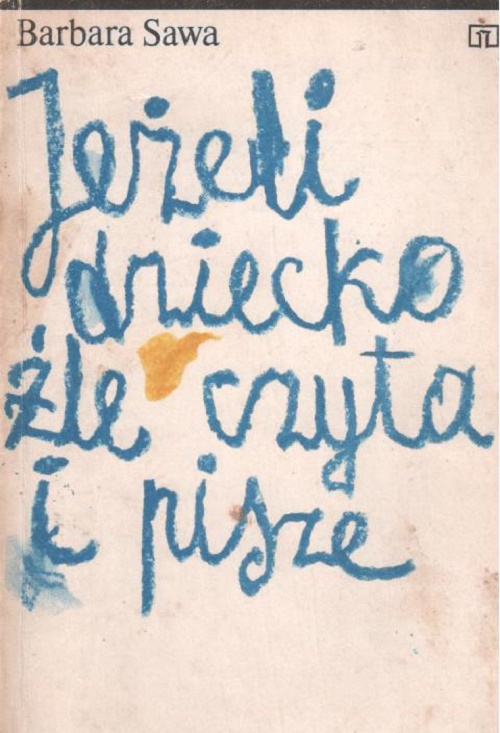 Barbara Sawa
Jeżeli
dziecko
źle czyta
i pisze